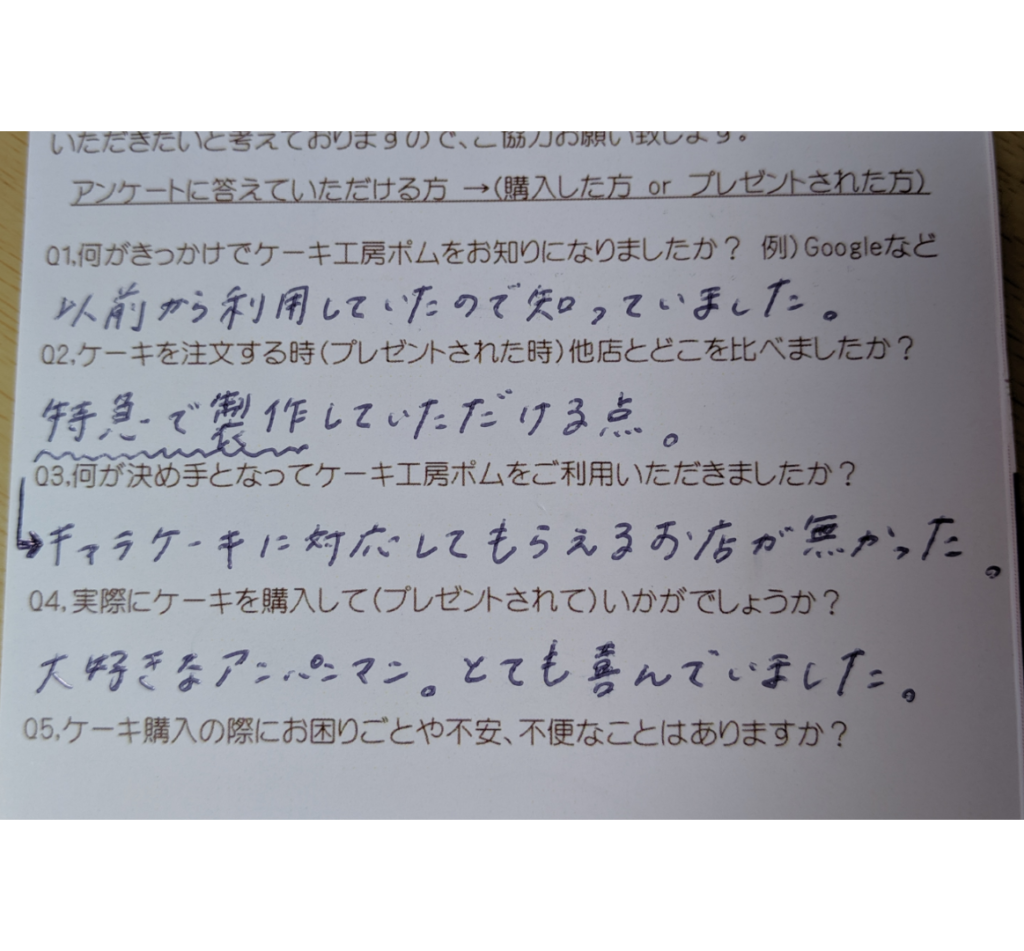 いただきたいと考えておりますので、ご協力お願い致します。
アンケートに答えていただける方 →(購入した方 or プレゼントされた方)
Q1,何がきっかけでケーキ工房ポムをお知りになりましたか? 例)Googleなど
以前から利用していたので知っていました。
Q2,ケーキを注文する時(プレゼントされた時)他店とどこを比べましたか?
特急で製作していただける点。
Q3,何が決め手となってケーキ工房ポムをご利用いただきましたか?
→キャラケーキに対応してもらえるお店が無かった。
Q4,実際にケーキを購入して(プレゼントされて)いかがでしょうか?
大好きなアンパンマン。とても喜んでいました。
Q5,ケーキ購入の際にお困りごとや不安、不便なことはありますか?